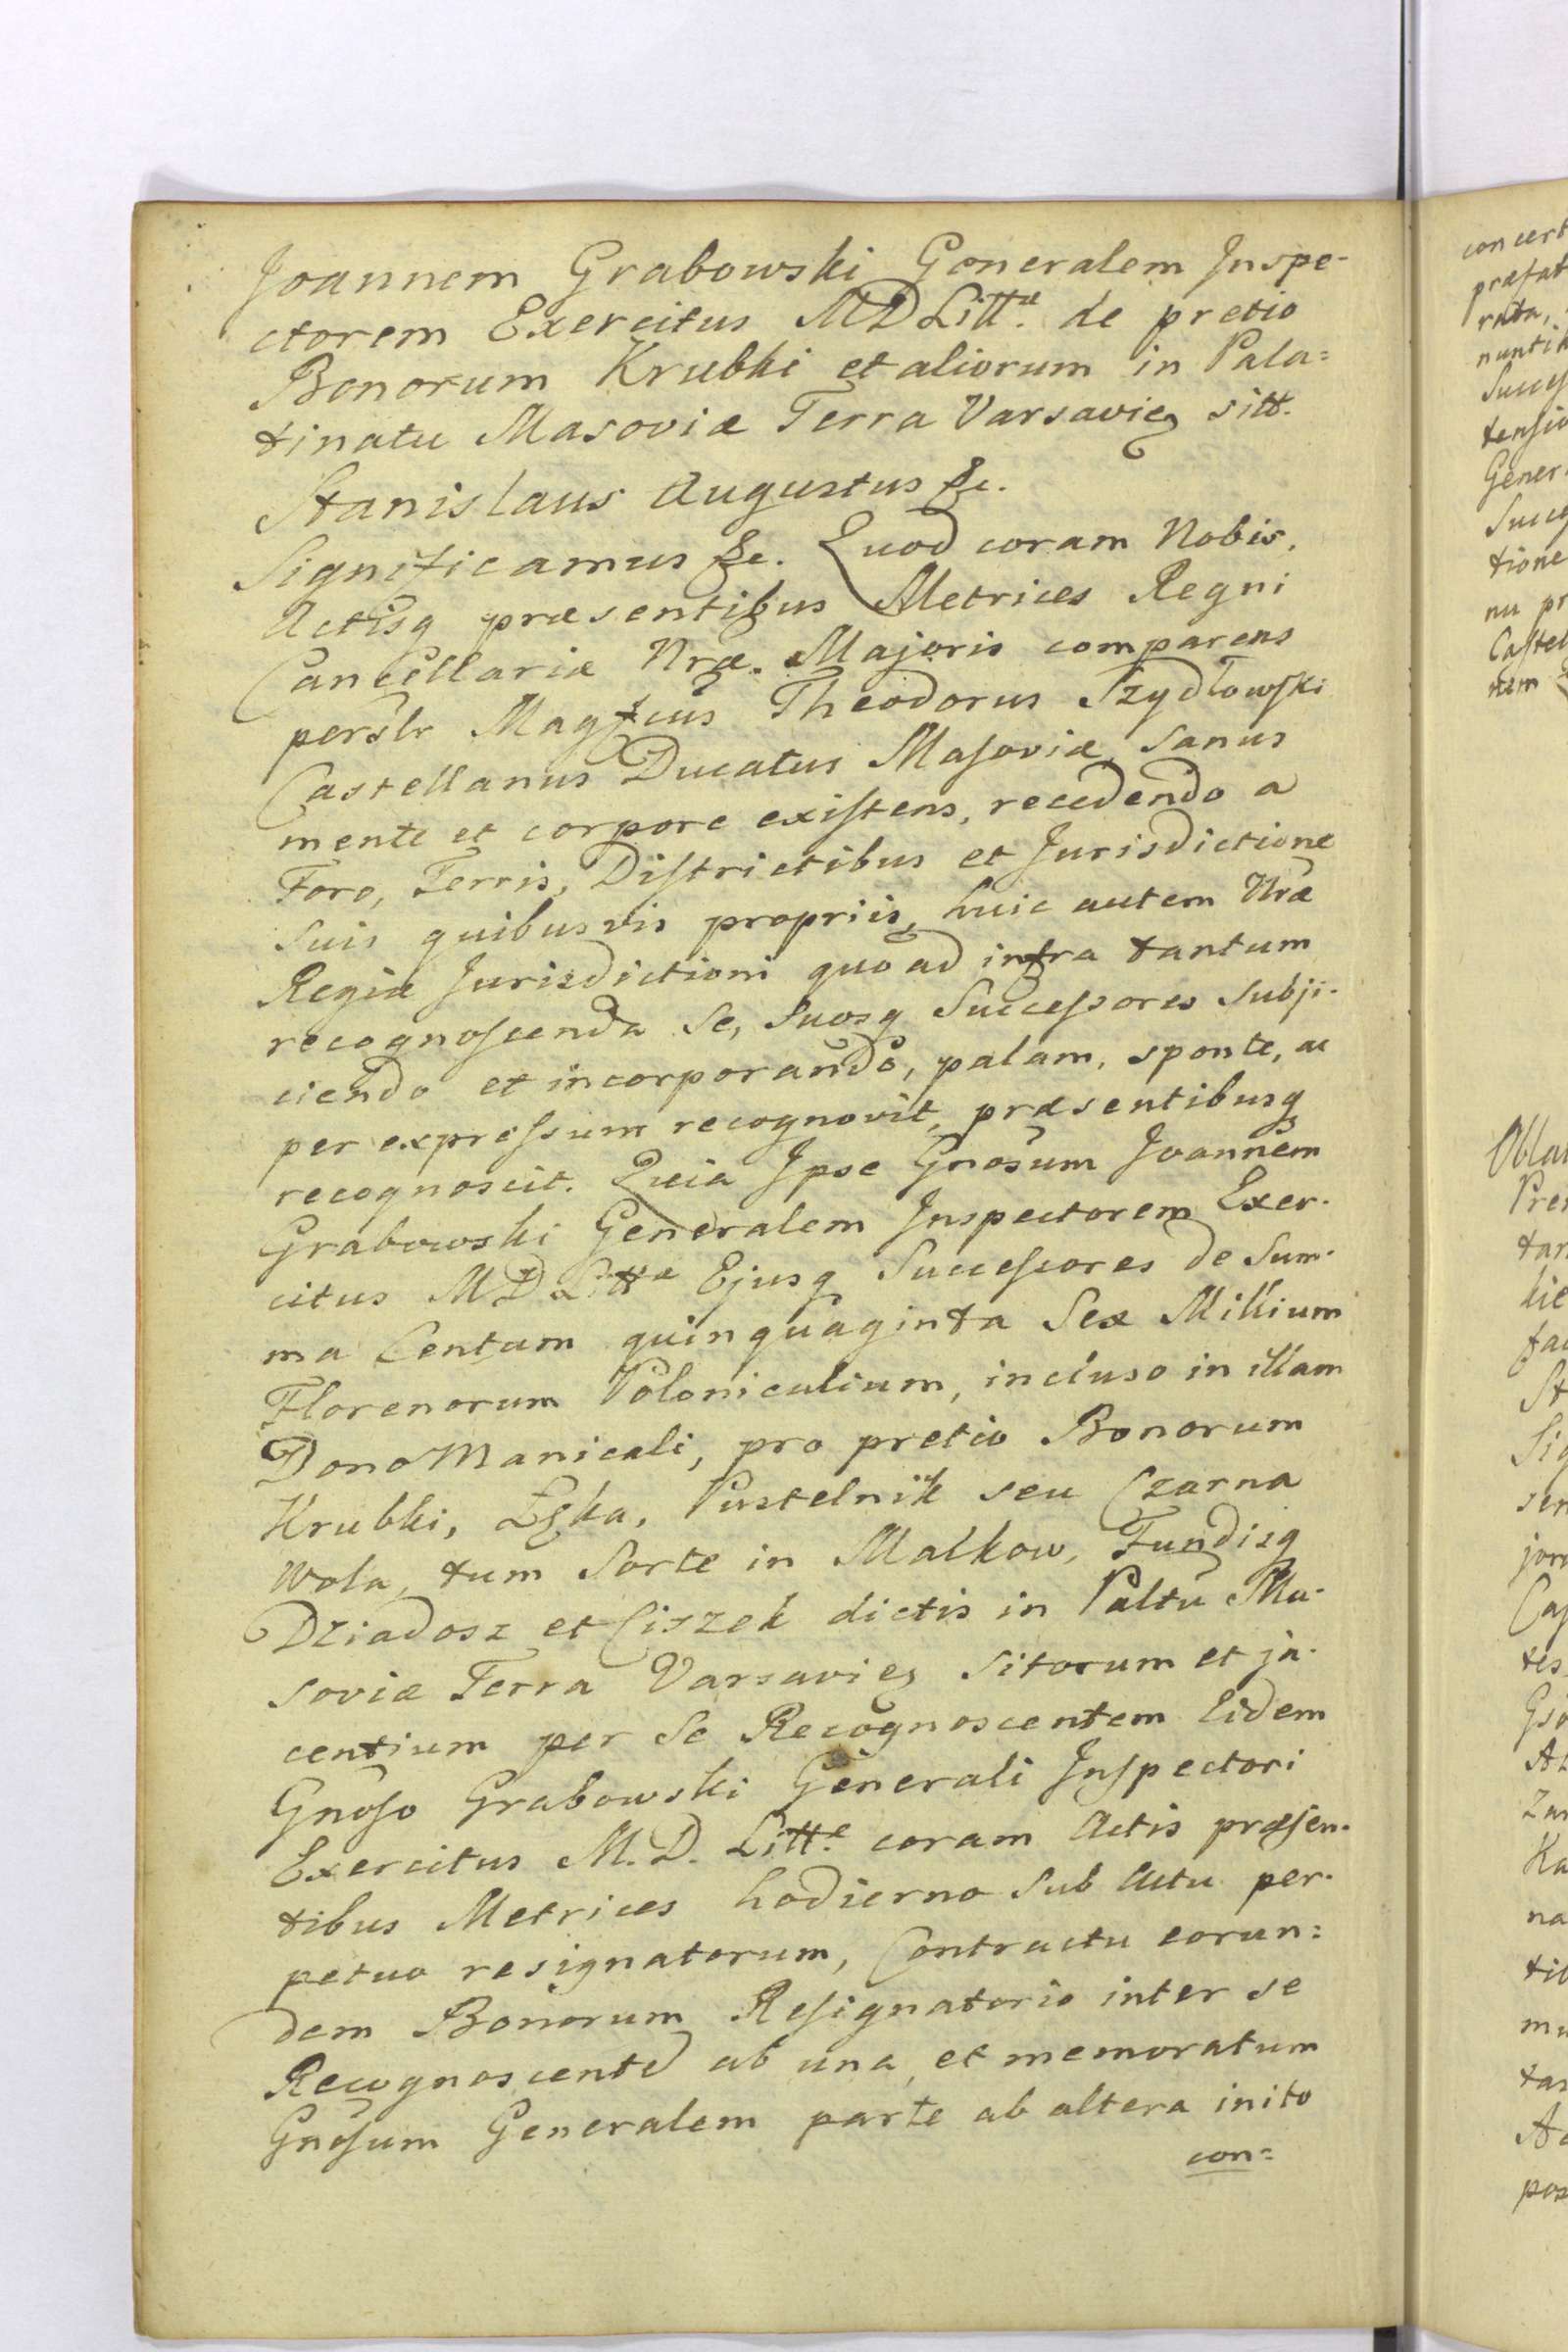 Joannem Grabowski Generalem Inspe-
ctorem Exercitus MDLittæ de pretio
Bonorum Krubki et aliorum in Pala=
tinatu Masoviæ Terra Varsavieg sitt.
Stanislaus Augustus &c.
Significamus &c. Quod coram Nobis,
Actisq præsentibus Metrices Regni
Cancellariæ Nræ. Majoris comparens
perslr Magfcus Theodorus Szydłowski
Castellanus Ducatus Masoviæ, sanus
mente et corpore existens, recedendo a
Foro, Terris, Districtibus et Jurisdictione
suis quibusvis propriis, huic autem Nræ
Regiæ Jurisdictioni quo ad infra tantum
recognoscenda se, suosq Successores subji-
ciendo et incorporando, palam, sponte, ac
per expressum recognovit, præsentibusq
recognoscit. Quia Ipse Gnosum Joannem
Grabowski Generalem Inspectorem Exer-
citus MD Littæ Ejusq Successores de Sum-
ma Centum quinquaginta Sex Millium
Florenorum Polonicalium, incluso in illam
Dono Manicali, pro pretio Bonorum
Krubki, Łęka, Pustelnik seu Czarna
Wola, tum Sorte in Malkow, Fundisq
Dziadosz et Ciszek dictis in Paltu Ma-
soviæ Terra Varsavieg sitorum et ja-
centium per Se Recognoscentem Eidem
Gnoso Grabowski Generali Inspectori
Exercitus M.D. Litte coram Actis præsen-
tibus Metrices hodierno sub Actu per-
petuo resignatorum, Contractu eorun=
dem Bonorum Resignatorio inter se
Recognoscente ab una, et memoratum
Gnosum Generalem parte ab altera inito
con=